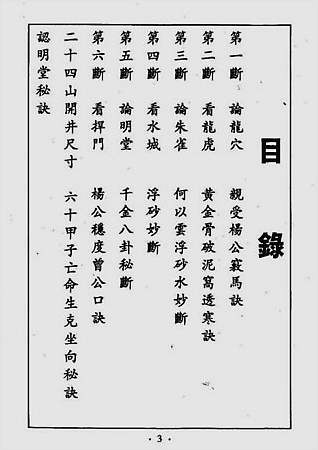 目錄
第一斷　論龍穴　親受楊公裝馬訣
第二斷　看龍虎　黃金骨破泥窩透寒訣
第三斷　論朱雀　何以雲浮砂水妙斷
第四斷　看水城　浮砂妙斷
第五斷　論明堂　千金八卦秘斷
第六斷　看捍門　楊公穩度曾公口訣
二十四山開井尺寸　六十甲子亡命生克坐向秘訣
認明堂秘訣
·3·